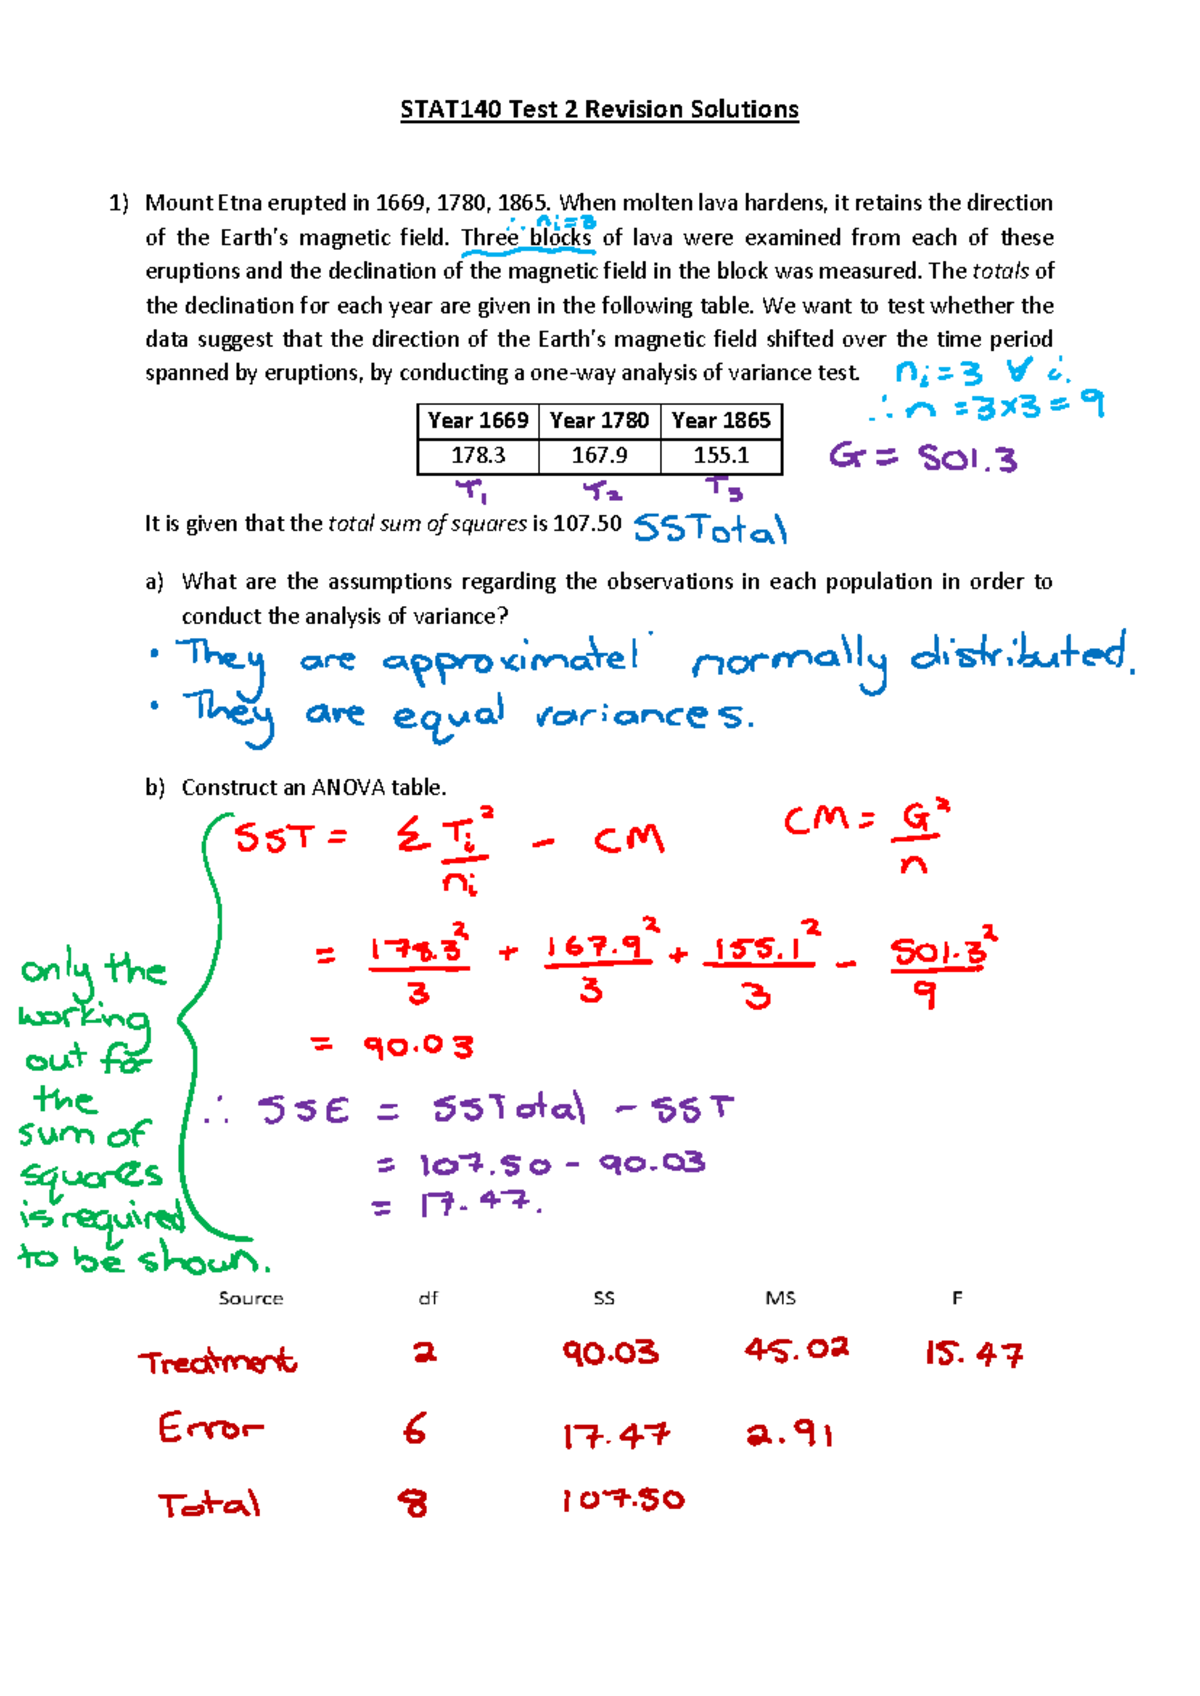 STAT140 Test 2 Revision Solutions
1) Mount Etna erupted in 1669, 1780, 1865. When molten lava hardens, it retains the direction
∴ ni = 3
of the Earth's magnetic field. Three blocks of lava were examined from each of these
eruptions and the declination of the magnetic field in the block was measured. The totals of
the declination for each year are given in the following table. We want to test whether the
data suggest that the direction of the Earth's magnetic field shifted over the time period
spanned by eruptions, by conducting a one-way analysis of variance test.
ni = 3 ∀ i.
∴ n = 3×3 = 9
Year 1669 Year 1780 Year 1865
178.3 167.9 155.1
G = 501.3
T1 T2 T3
It is given that the total sum of squares is 107.50 SSTotal
a) What are the assumptions regarding the observations in each population in order to
conduct the analysis of variance?
• They are approximatel normally distributed.
• They are equal variances.
b) Construct an ANOVA table.
SST = Σ Ti²/ni - CM
CM = G²/n
= 178.3²/3 + 167.9²/3 + 155.1²/3 - 501.3²/9
= 90.03
∴ SSE = SSTotal - SST
= 107.50 - 90.03
= 17.47.
only the
working
out for
the
sum of
squares
is required
to be shown.
Source df SS MS F
Treatment 2 90.03 45.02 15.47
Error 6 17.47 2.91
Total 8 107.50